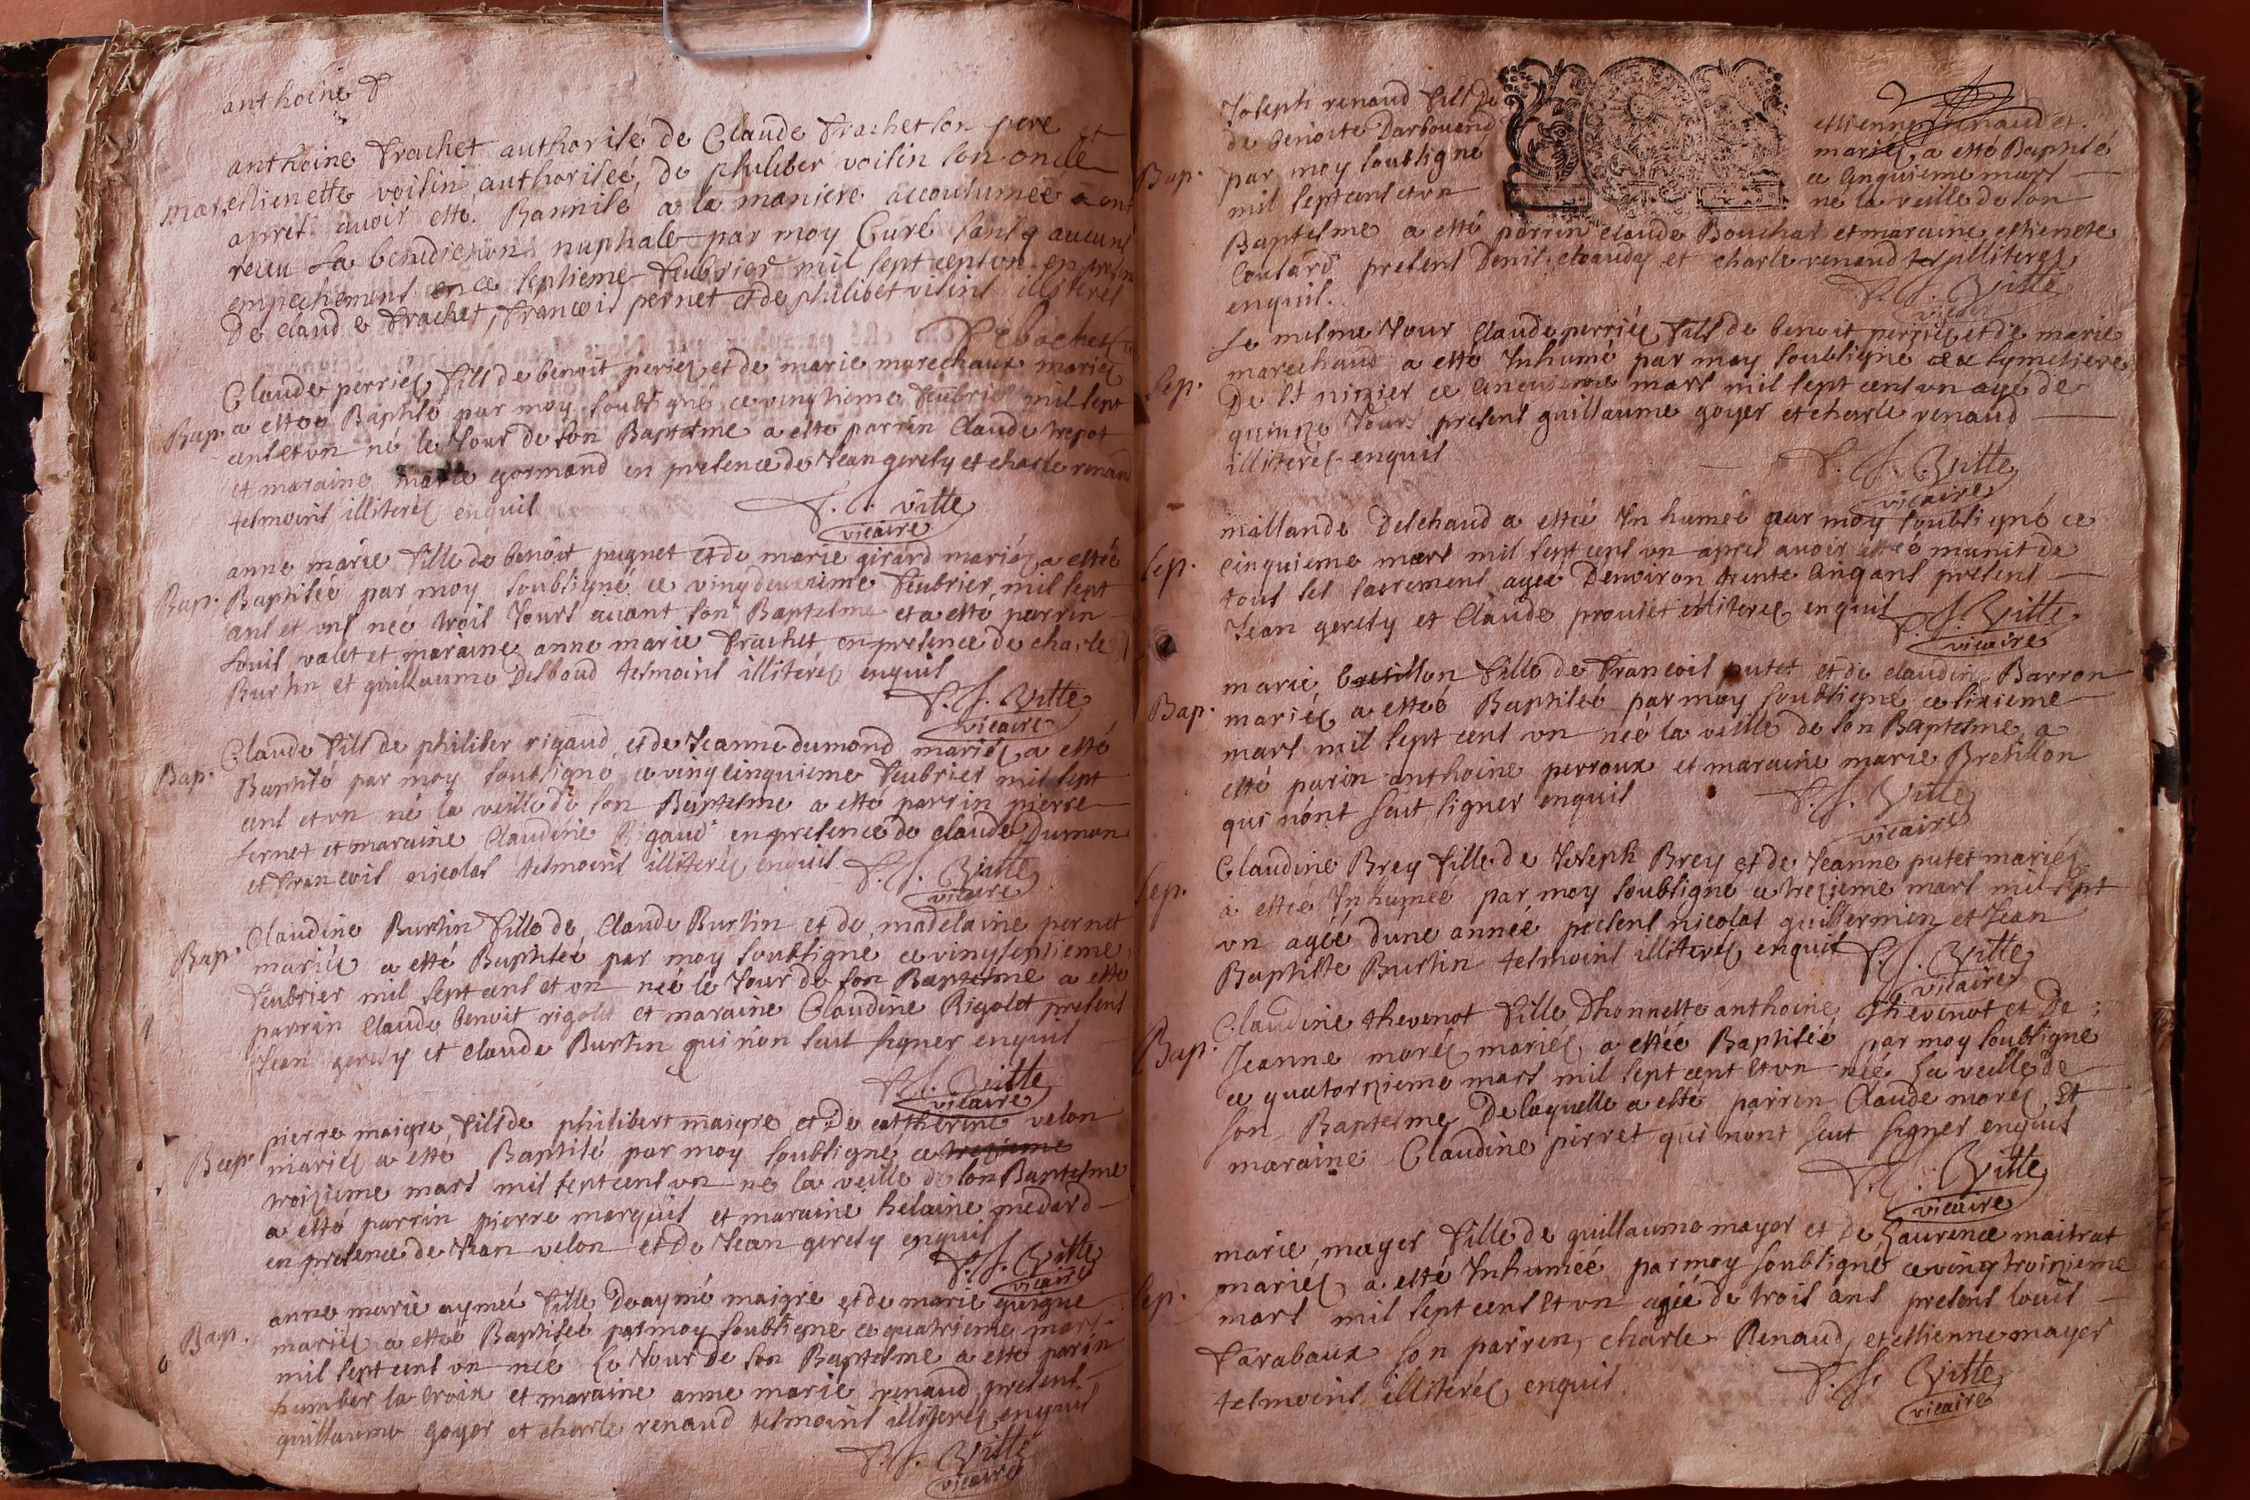 anthoine f
anthoine frachet authorisé de Claude frachet son pere et
mar. estienette voisin authorisée de philiber voisin son oncle
apret avoir etté Bannisé a la maniere accoutumée a ont
receu La benediction nuptiale par moy Curé sans aucuns
empechement en ce septieme feubrier mil sept cent un en
De claude frachet, francois pernet et de philibet voisins illiterés
Claude perrier fils de benoit perier et de marie marechaux mariés
Bap. a ettee Baptisé par moy soubsigné ce vingtieme feubrier mil sept
cens et un né le Jour de son Baptesme a esté parrin Claude trepot
et maraine marie gormand en presence de Jean geresy et charle renaud
tesmoins illiterés enquis
f. J. Vitte
vicaire
anne marie fille de benoit pugnet et de marie girard mariés a ettée
Bap. Baptisée par moy soubsigné ce vingdeuxieme feubrier mil sept
cens et uns née trois Jours avant son Baptesme et a esté parrin
Louis valet et maraine anne marie frachet en presence de charle
Burtin et guillaume Desboud tesmoins illiterés enquis
f. J. Vitte
vicaire
Claude fils de philiber rigaud et de Jeanne dumond mariés a esté
Bap. Baptisé par moy soubsigné ce vingcinquieme feubrier mil sept
cens et un né la veille de son Baptesme a esté parrin pierre
fernet et maraine Claudine Rigaud en presence de claude Dumon
et francois nicolas tesmoins illiterés enquis f. J. Vitte
vicaire
Claudine Burtin fille de Claude Burtin et de madelaine pernet
Bap. mariés a etté Baptisée par moy soubsigné ce vingseptieme
feubrier mil sept cens et un née le Jour de son Baptesme a esté
parrin Claude benoit rigolet et maraine Claudine Rigolet presens
Jean geresy et Claude Burtin qui n'on seut signer enquis
f. J. Vitte
vicaire
pierre maigre fils de philibert maigre et De catherine velon
Bap. mariés a esté Baptisé par moy soubsigné ce trezieme
troizieme mars mil sept cens un né la veille de son Baptesme
a esté parrin pierre marquis et maraine helaine medard
en presence de Jean velon et de Jean geresy enquis
f. J. Vitte
vicaire
anne marie aymée fille De aymé maigre et de marie guigue
Bap. mariés a ettée Baptisée par moy soubsigné ce quatrieme mars
mil sept cens un née Le Jour de son Baptesme a esté parin
humber la croix et maraine anne marie renaud presens
guillaume goyer et charle renaud tesmoins illiterés enquis
f. J. Vitte
vicaire
Joseph renaud fils de estienne renaud et
de benoite Darbouend mariés, a etté Baptisé
Bap. par moy soubsigné ce cinquieme mars
mil sept cens et un né la veille de son
Baptesme a etté parrin claude Bouchat et maraine estienete
Coulard presens Denis chaudy et charle renaud illiterés
enquis. f. J. Vitte
vicaire
Le mesme Jour Claude perrier fils de benoit perrier et de marie
Sep. marechaud a etté Inhumé par moy soubsigné au symetiere
De St nizier ce cincuieme mars mil sept cens un agé de
quinze Jours presens guillaume goyer et charle renaud
illiterés enquis
f. J. Vitte
vicaire
millande Deschaud a ettée Inhumée par moy soubsigné ce
Sep. cinquieme mars mil sept cens un apres avoir ettée munit de
tous les sacremens agée D'environ trente cinq ans presens
Jean geresy et Claude prouset illiterés enquis f. J. Vitte
vicaire
marie bretillon fille de francois putet et de claudine Barron
Bap. mariés a ettée Baptisée par moy soubsigné ce sixieme
mars mil sept cens un née la veille de son Baptesme a
esté parin anthoine perroux et maraine marie Bretillon
qui n'ont seut signer enquis f. J. Vitte
vicaire
Claudine Brey fille de Joseph Brey et de Jeanne putet mariés
Sep. a ettée Inhumée par moy soubsigné ce trezieme mars mil sept
un agée dune année presens nicolas guillermien et Jean
Baptiste Burtin tesmoins illiterés enquis f. J. Vitte
vicaire
Claudine thevenot fille Dhonnette anthoine thevenot et De
Bap. Jeanne morés mariés a ettée Baptisée par moy soubsigné
ce quatorzieme mars mil sept cent et un née La veille de
son Baptesme De laquelle a esté parrin Claude morés Et
maraine Claudine pirret qui n'ont seut signer enquis
f. J. Vitte
vicaire
marie mayer fille de guillaume mayer et de Laurence maitrat
Sep. mariés a esté Inhumée par moy soubsigné ce vingtroizieme
mars mil sept cens et un agée de trois ans presens louis
farabaux son parrin, charle Renaud, et estienne mayer
tesmoins illiterés enquis. f. J. Vitte
vicaire